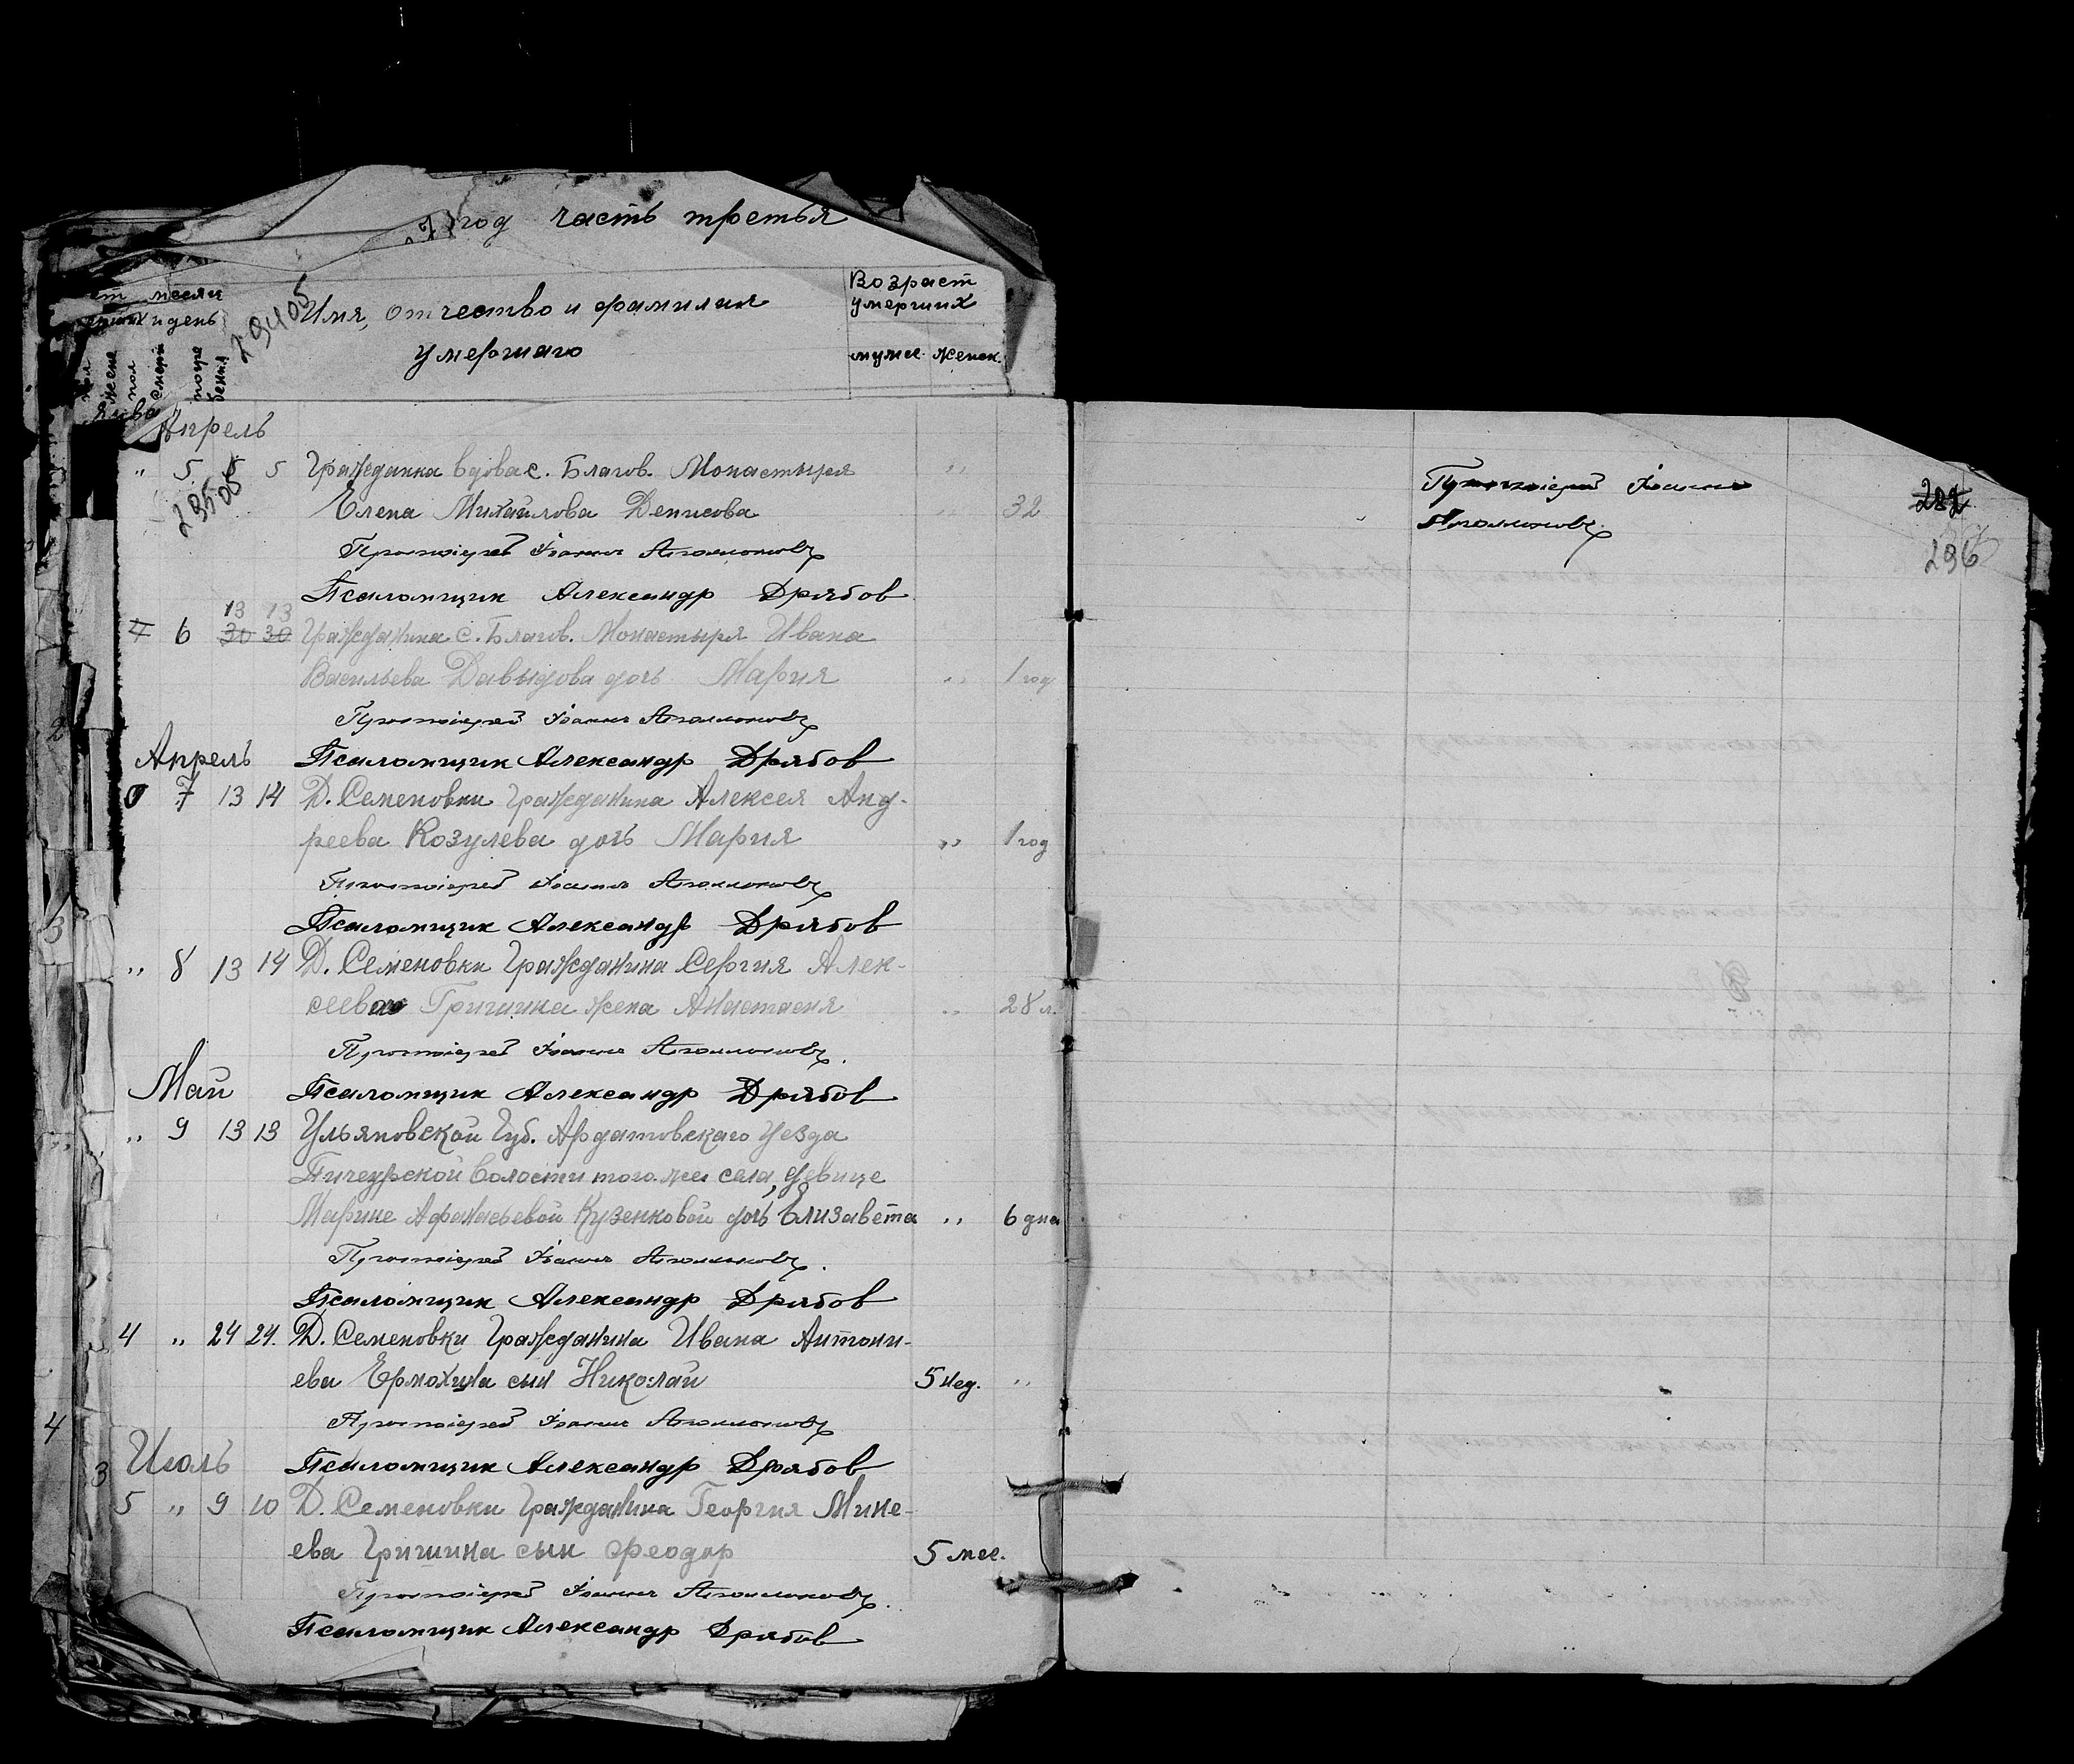 год часть третья
месяц
и день
29405
Имя, отчество и фамилия
умершаго
Возраст
умерших
мужс. женск.
жене
пол
смерт
погре
бения
Апрель
" 5 5 5 Гражданка вдова с. Благов. Монастыря "
29505
Елена Михайлова Денисова " 32
Протоиерей Іоанн Аполлонов
Псаломщик Александр Дрябов
13 13
6 30 30 Гражданина с. Благов. Монастыря Ивана
Васильева Давыдова дочь Мария " 1 год
Протоиерей Іоанн Аполлонов
Апрель Псаломщик Александр Дрябов
7 13 14 Д. Семеновки Гражданина Алексея Анд-
реева Козулева дочь Мария " 1 год
Протоиерей Іоанн Аполлонов
Псаломщик Александр Дрябов
" 8 13 14 Д. Семеновки Гражданина Сергия Алек-
сеева Гришина жена Анастасия " 28 л.
Протоиерей Іоанн Аполлонов.
Май Псаломщик Александр Дрябов
" 9 13 13 Ульяновской Губ. Ардатовскаго Уезда
Пичеурской волости того-же села, девице
Марине Афанасьевой Кузенковой дочь Елизавета " 6 дня
Протоиерей Іоанн Аполлонов.
Псаломщик Александр Дрябов
4 " 24 24. Д. Семеновки Гражданина Ивана Антони-
ева Ермохина сын Николай 5 нед. "
Протоиерей Іоанн Аполлонов
Июль Псаломщик Александр Дрябов
5 " 9 10 Д. Семеновки Гражданина Георгия Мине-
ева Гришина сын Феодор 5 мес.
Протоиерей Іоанн Аполлонов.
Псаломщик Александр Дрябов
2
3
4
3
Протоиерей Іоанн
Аполлонов
282
296